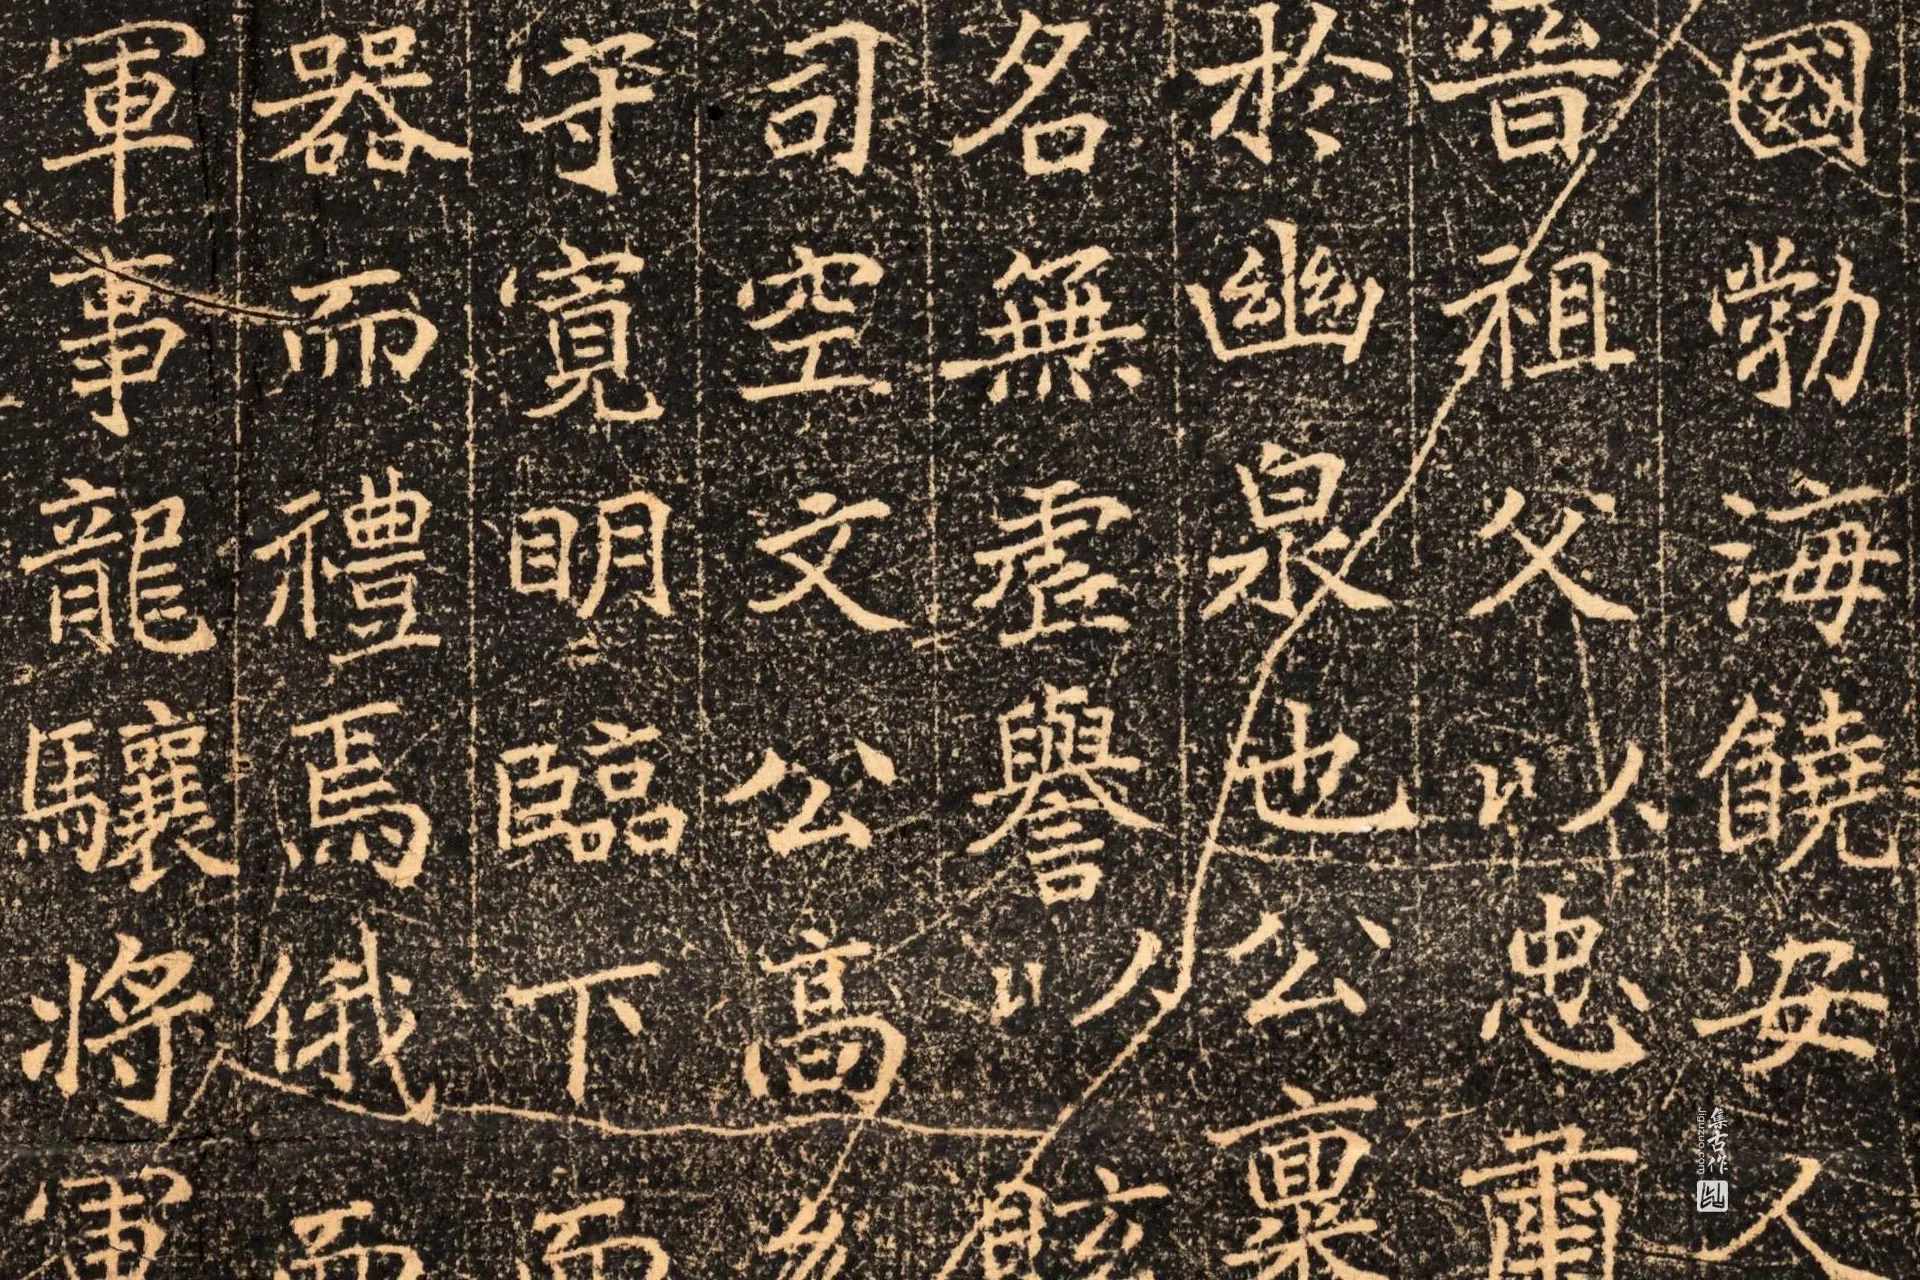 國勃海饒安人
晉祖父以忠肅
於幽泉也公稟
名無虛譽以能
司空文公高
守寬明臨下而
器而禮焉俄而
軍事龍驤將軍
集古作
jiguzuo.com